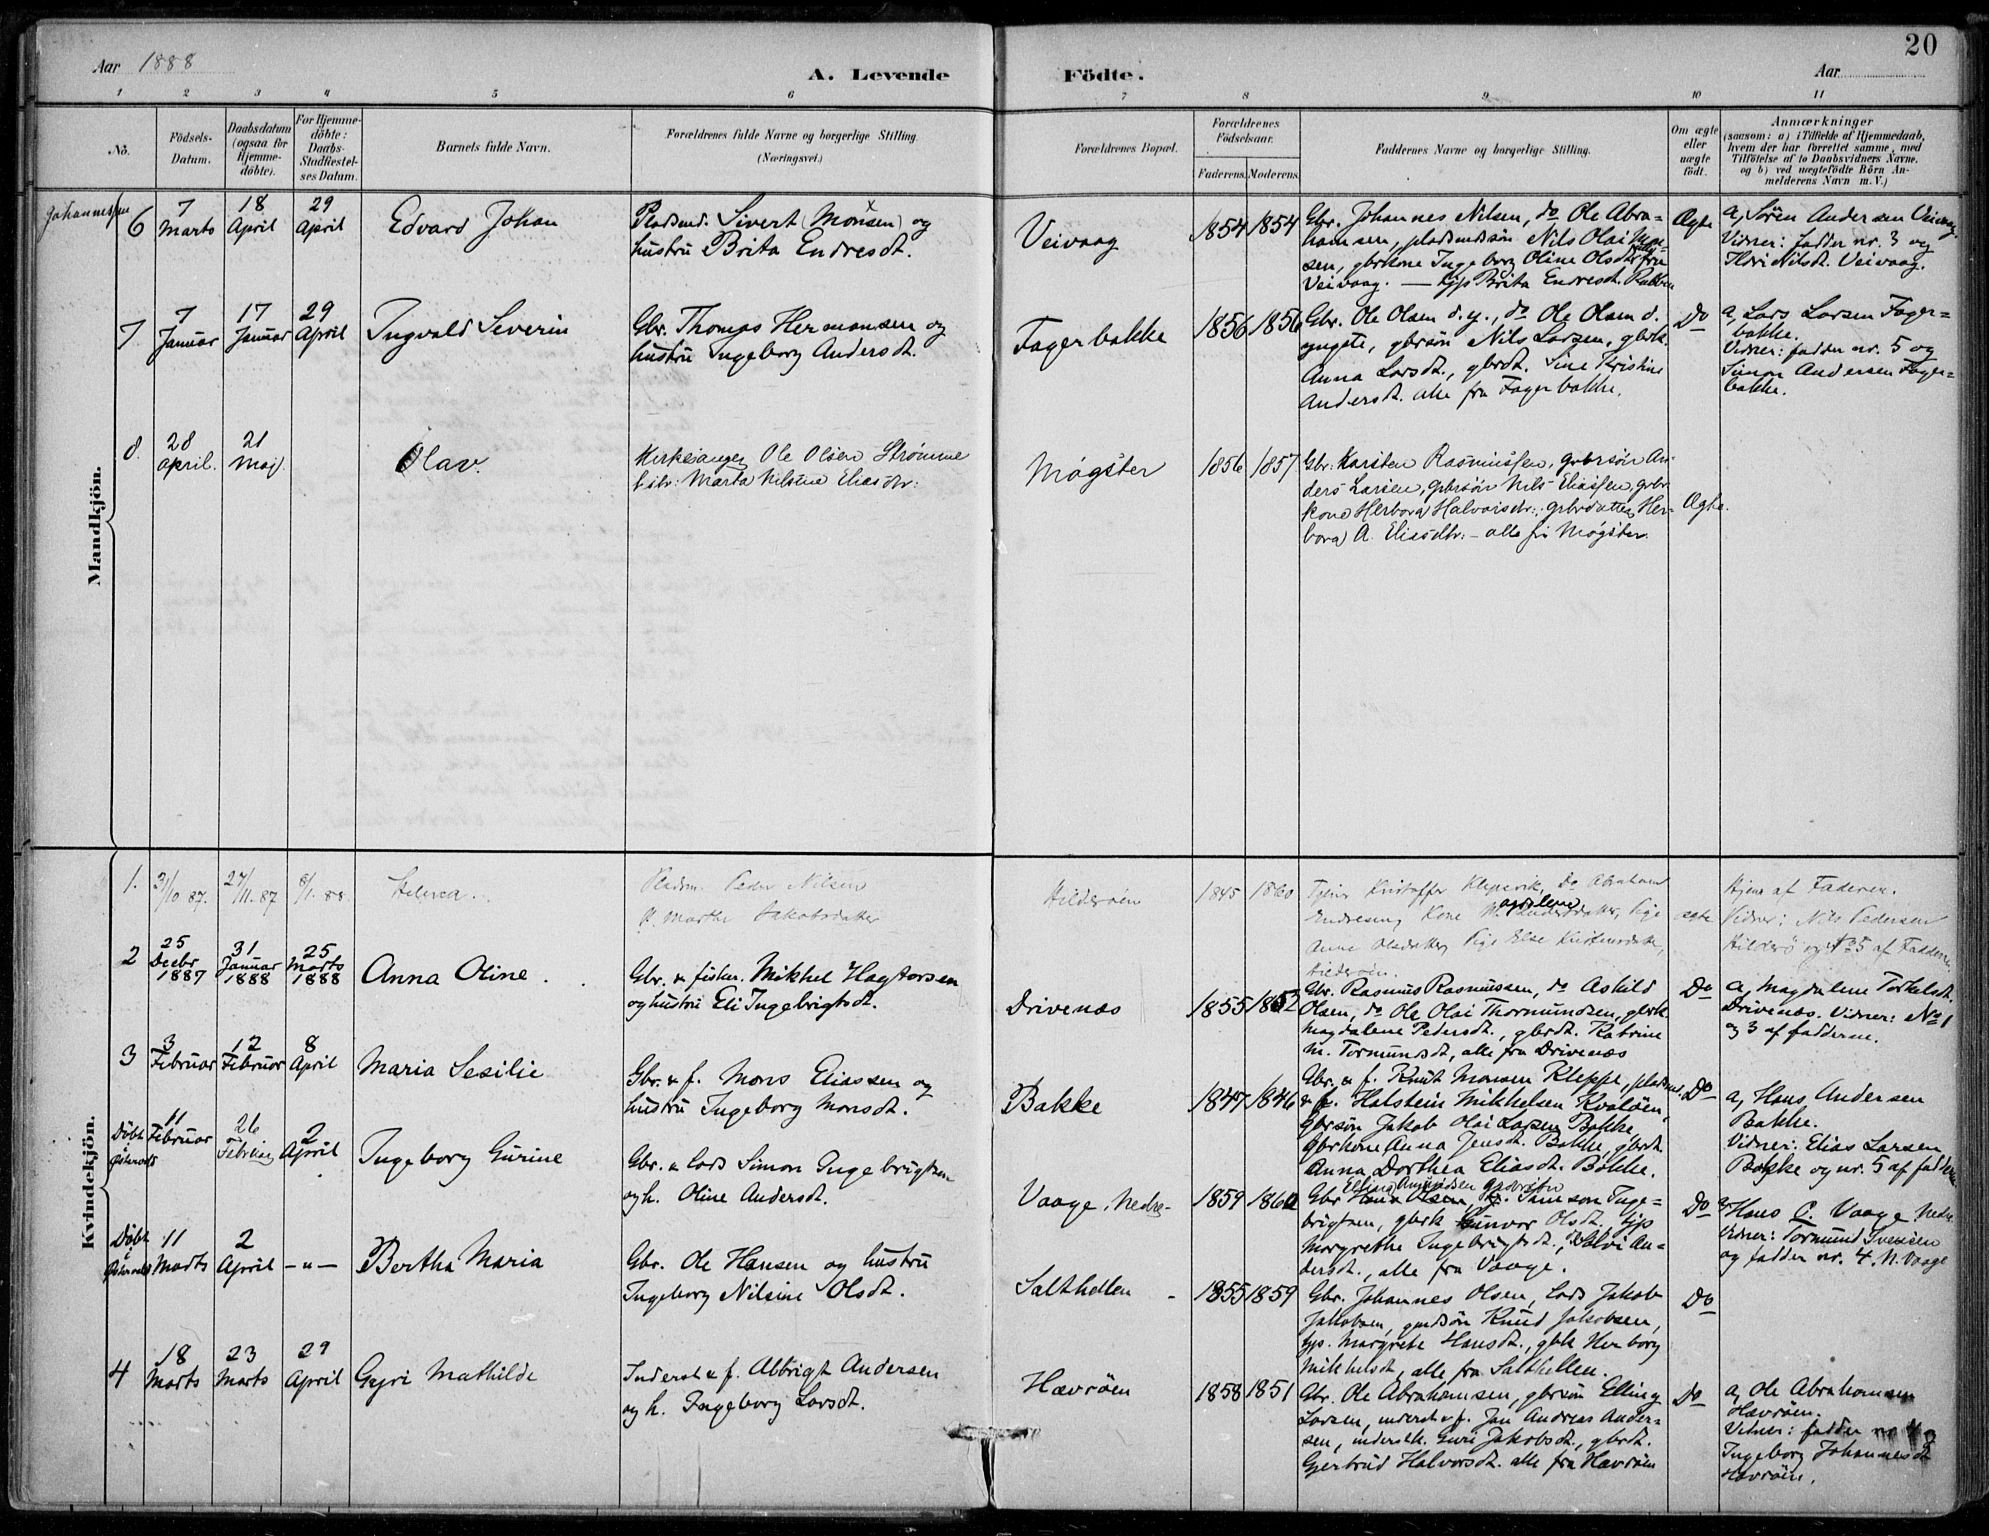 20
Aar 1888
A. Levende Födte.
Aar
1 2 3 4 5 6 7 8 9 10 11
No.
Födsels-Datum.
Daabsdatum (ogsaa for Hjemmedöbte).
For Hjemmedöbte: Daabs-Stadfæstelses Datum.
Barnets fulde Navn.
Forældrenes fulde Navne og borgerlige Stilling. (Næringsvei.)
Forældrenes Bopæl.
Forældrenes Födselsaar.
Faderens. Moderens.
Faddernes Navne og borgerlige Stilling.
Om ægte eller uægte födt.
Anmærkninger
(saasom: a) i Tilfælde af Hjemmedaab, hvem der har forrettet samme, med Tilföielse af to Daabsvidners Navne. og b) ved uægtefödte Börn Anmelderens Navn m. V.)
Mandkjön.
Johannessen
6
7 Marts
18 April
29 April
Edvard Johan
Pladsmd. Sivert (Monsen) og
hustru Brita Endresdt.
Veivaag
1854 1854
Gbr. Johannes Nilsen, do Ole Abra=
hamsen, pladsmdssön Nils Olai Mon-
sen, gbrkone Ingeborg Oline Olsdt. fra
Veivaag. — Pige Brita Endresdt. Rabben
Ægte
a, Sören Andersen Veivaag.
Vidner: fadder nr. 3 og
Nilsdt. Veivaag.
7
7 Januar
17 Januar
29 April
Ingvald Severin
Gbr. Thomas Hermansen og
hustru Ingeborg Andersdt.
Fagerbakke
1856 1856
Gbr. Ole Olsen d. y., do Ole Olsen d.
yngste, gbrsön Nils Larsen, gbrk.
Anna Larsdt., gbrdt. Sine Kristine
Andersdt. alle fra Fagerbakke.
Do
a, Lars Larsen Fager=
bakke.
Vidner: fadder nr. 5 og
Simon Andersen Fager=
bakke.
8.
28 april.
21 Maj.
Olav.
Kirkesanger Ole Olsen Strømme
Marta Nilsine Eliasdtr:
Møgster
1856 1857
Gbr: Karsten Rasmussen, gbrsön An-
ders Larsen, gbrsön Nils Eliassen, gbr-
kone Herborg Halvorsdtr:, gbrdatter Her-
borg A. Eliasdtr: - alle fra Møgster.
Ægte.
Kvindekjön.
1.
31/10 87.
27/11. 87
8/1. 88
Pladsm. Peder Nilsen
H. Marthe Jakobsdatter
Hilderöen
1845 1860
Kristoffer Klepsvik, Do Abraham
Endresen, Kone Andersdatter, Pige
Anne Olsdatter, Pige Else
Hilderöen.
ægte
Hjem af Faderen.
Vidner: Nils Pedersen
Hilderö og No 5 af Fadderne.
2
25 Decbr 1887
31 Januar 1888
25 Marts 1888
Anna Oline.
Gbr. & fisker. Mikkel Hagtorsen
og hustru Eli Ingebrigtsdt.
Drivenæs
1855 1852
Gbr. Rasmus Rasmussen, do Askild
Olsen, do Ole Olai Thormundsen, gbrk.
Magdalene Pedersdt., gbrdt. Katrine
M. Tormundsdt, alle fra Drivenæs
Do
a, Magdalene Torkelsdt.
Drivenæs. Vidner: No 1
og 3 af fadderne.
3
3 Februar
12 Februar
8 April
Maria Sesilie
Gbr. & f. Mons Eliassen og
hustru Ingeborg Monsdt.
Bakke
1847 1846
Gbr. & f. Knut Monsen Kleppe, pladsmd.
& f. Halstein Mikkelsen Kvalöen,
Gbrsön Jakob Olai Larsen Bakke
Gbrkone Anna Jensdt. Bakke, gbrdt.
Anna Dorthea Eliasdt. Bakke.
Do
a, Hans Andersen
Bakke.
Vidner: Elias Larsen
Bakke og nr. 5 af fadderne
Döbt i Östervold
11 Februar
26 Februar
2 April
Ingeborg Gurine
Gbr. & Lods Simon Ingebrigtsen
og h. Oline Andersdt.
Vaage, Nedre-
1859 1860
Elling Amundsen gaardbr.
Gbr Hans Olsen, Samson Inge=
brigtsen, gbrk Gunvor Olsdt. Pige
Margrethe Ingebrigtsdt., An=
dersdt., alle fra Vaage.
Do
Hans C. Vaage Nedre
Vidner: Tormund Svensen
og fadder nr. 4. N. Vaage
Döbt i Östervold
11 Marts
2 April
- " -
Bertha Maria
Gbr. Ole Hansen og hustru
Ingeborg Nilsine Olsdt.
Salthellen
1855 1859
Gbr. Johannes Olsen, Lods Jakob
Jakobsen, gmdsön Knud Jakobsen,
Margrete Hansdt., gbrk Herborg
Mikkelsdt, alle fra Salthellen.
Do
4
18 Marts
23 Marts
29 April
Gyri Mathilde
Inderst & f. Albrigt Andersen
og h. Ingeborg Larsdt.
Hævröen
1858 1851
Gbr. Ole Abrahamsen, gbrsön Elling
Larsen, inderst & f. Jan Andreas Ander=
sen, inderstk. Guri Jakobsdt., gbrdt.
Gjertrud Halvorsdt. alle fra Hævröen
Do
a, Ole Abrahamsen
Hævröen.
Vidner: fadder nr 4 og
Ingeborg Johannesdt
Hævröen.